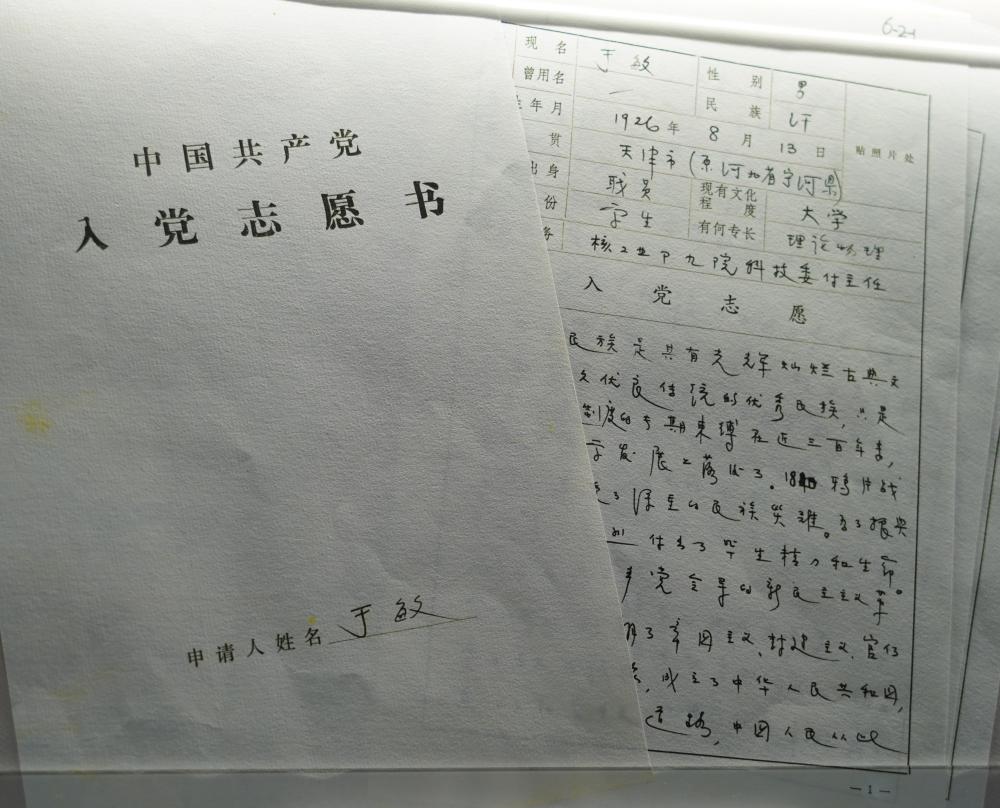 中国共产党
入党志愿书
申请人姓名 于敏
6-2-1
现名 于敏 性别 男
曾用名 一 民族 汉
年月 1926年8月13日 贴照片处
贯 天津市(原河北省宁河县)
出身 职员 现有文化程度 大学
份 学生 有何专长 理论物理
务 核工业部九院科技委付主任
入党志愿
民族是具有光辉灿烂古典文
久优良传统的优秀民族,只是
制度的专期束缚在近三百年来,
发展上落后了。1840鸦片战
了深重的民族灾难。为了振兴
付出了毕生精力和生命。
党领导的新民主主义革
了帝国主义、封建主义、官僚
,成立了中华人民共和国,
道路,中国人民从此
—1—